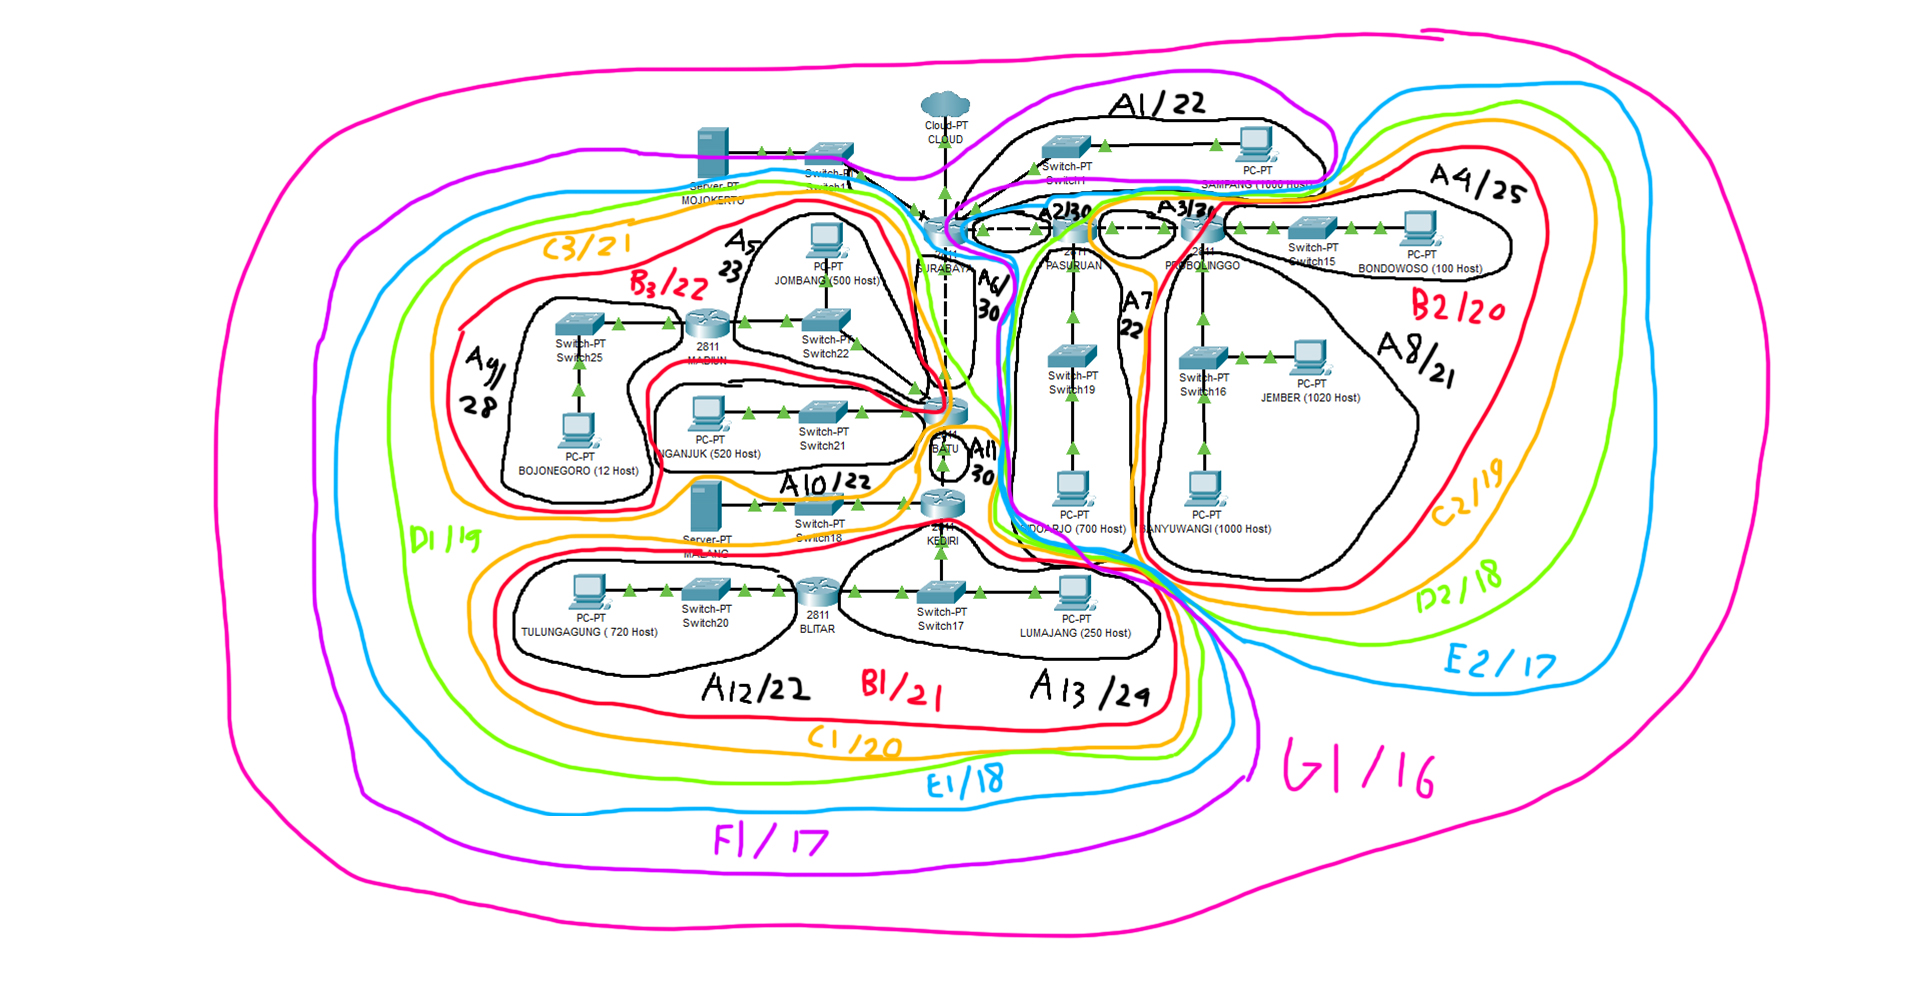 A1/22
Cloud-PT
CLOUD
Server-PT
MOJOKERTO
Switch-PT
Switch1
PC-PT
SAMPANG (1000 Host)
A4/25
A2/30
A3/30
2811
SURABAYA
2811
PASURUAN
2811
PROBOLINGGO
Switch-PT
Switch15
PC-PT
BONDOWOSO (100 Host)
C3/21
A5
23
PC-PT
JOMBANG (500 Host)
B3/22
A6/
30
A7
22
B2/20
Switch-PT
Switch25
2811
MADIUN
Switch-PT
Switch22
A9/
28
Switch-PT
Switch19
Switch-PT
Switch16
PC-PT
JEMBER (1020 Host)
A8/21
PC-PT
BOJONEGORO (12 Host)
PC-PT
NGANJUK (520 Host)
Switch-PT
Switch21
2811
BATU
A11
30
A10/22
Server-PT
MALANG
Switch-PT
Switch18
2811
KEDIRI
PC-PT
SIDOARJO (700 Host)
PC-PT
BANYUWANGI (1000 Host)
C2/19
D1/19
D2/18
PC-PT
TULUNGAGUNG ( 720 Host)
Switch-PT
Switch20
2811
BLITAR
Switch-PT
Switch17
PC-PT
LUMAJANG (250 Host)
E2/17
A12/22
B1/21
A13/24
C1/20
E1/18
G1/16
F1/17